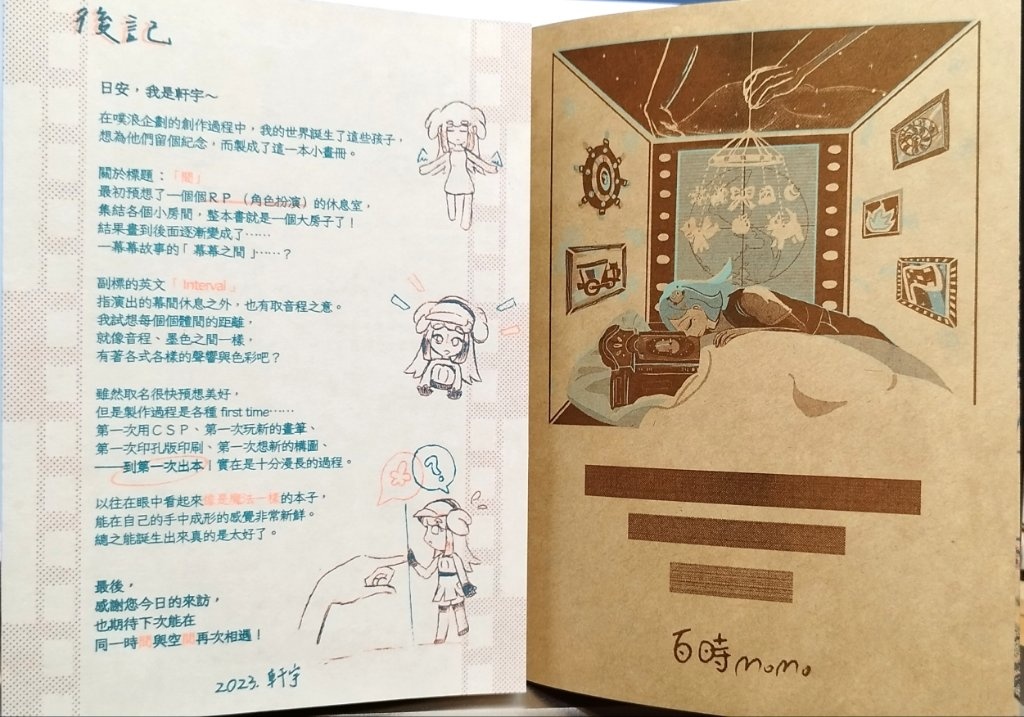 後記
日安，我是軒宇～
在噗浪企劃的創作過程中，我的世界誕生了這些孩子，
想為他們留個紀念，而製成了這一本小畫冊。
關於標題：「間」
最初預想了一個個ＲＰ（角色扮演）的休息室，
集結各個小房間，整本書就是一個大房子了！
結果畫到後面逐漸變成了……
一幕幕故事的「幕幕之間」……？
副標的英文「Interval」
指演出的幕間休息之外，也有取音程之意。
我試想每個個體間的距離，
就像音程、墨色之間一樣，
有著各式各樣的聲響與色彩吧？
雖然取名很快預想美好，
但是製作過程是各種 first time……
第一次用ＣＳＰ、第一次玩新的畫筆、
第一次印孔版印刷、第一次想新的構圖、
——到第一次出本！實在是十分漫長的過程。
以往在眼中看起來像是魔法一樣的本子，
能在自己的手中成形的感覺非常新鮮。
總之能誕生出來真的是太好了。
最後，
感謝您今日的來訪，
也期待下次能在
同一時間與空間再次相遇！
2023. 軒宇
?
百時momo